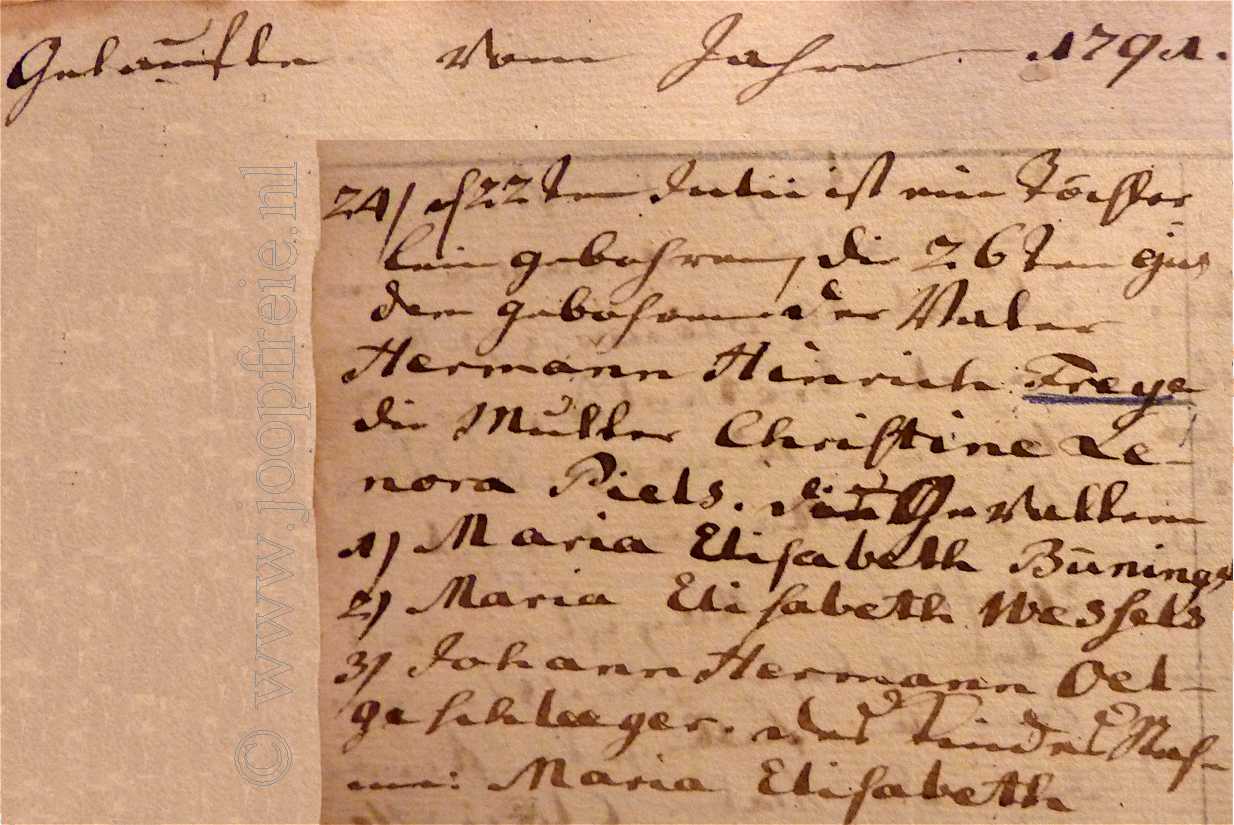 Getaufte vom Jahre 1791.
24) d 22ten Julii ist ein Töchter-
lein gebohren, die 26ten ejus
dem gebohren der Vater
Hermann Hinrich Freye
die Mutter Christine Le-
nora Piels. die Gevattern
1) Maria Elisabeth Bünings
2) Maria Elisabeth Wessels
3) Johann Hermann Oel-
geschleeger. des Kindes Nah-
me: Maria Elisabeth
© www.joopfreie.nl